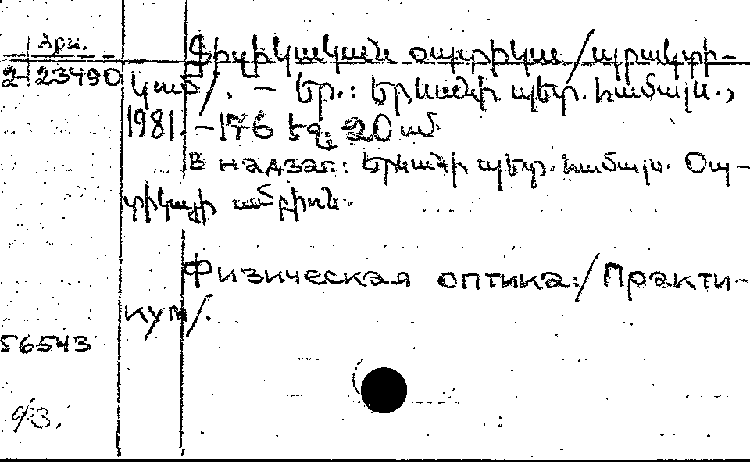 Арм.
2-23490
Ֆիզիկական օպտիկա /պրակտի-
կում/. – Եր.: Երևանի պետ. համալս.,
1981. – 176 էջ; 20 սմ
В надзаг.: Երևանի պետ. համալս. Օպ-
տիկայի ամբիոն.
Физическая оптика: /Практи-
кум/.
56543